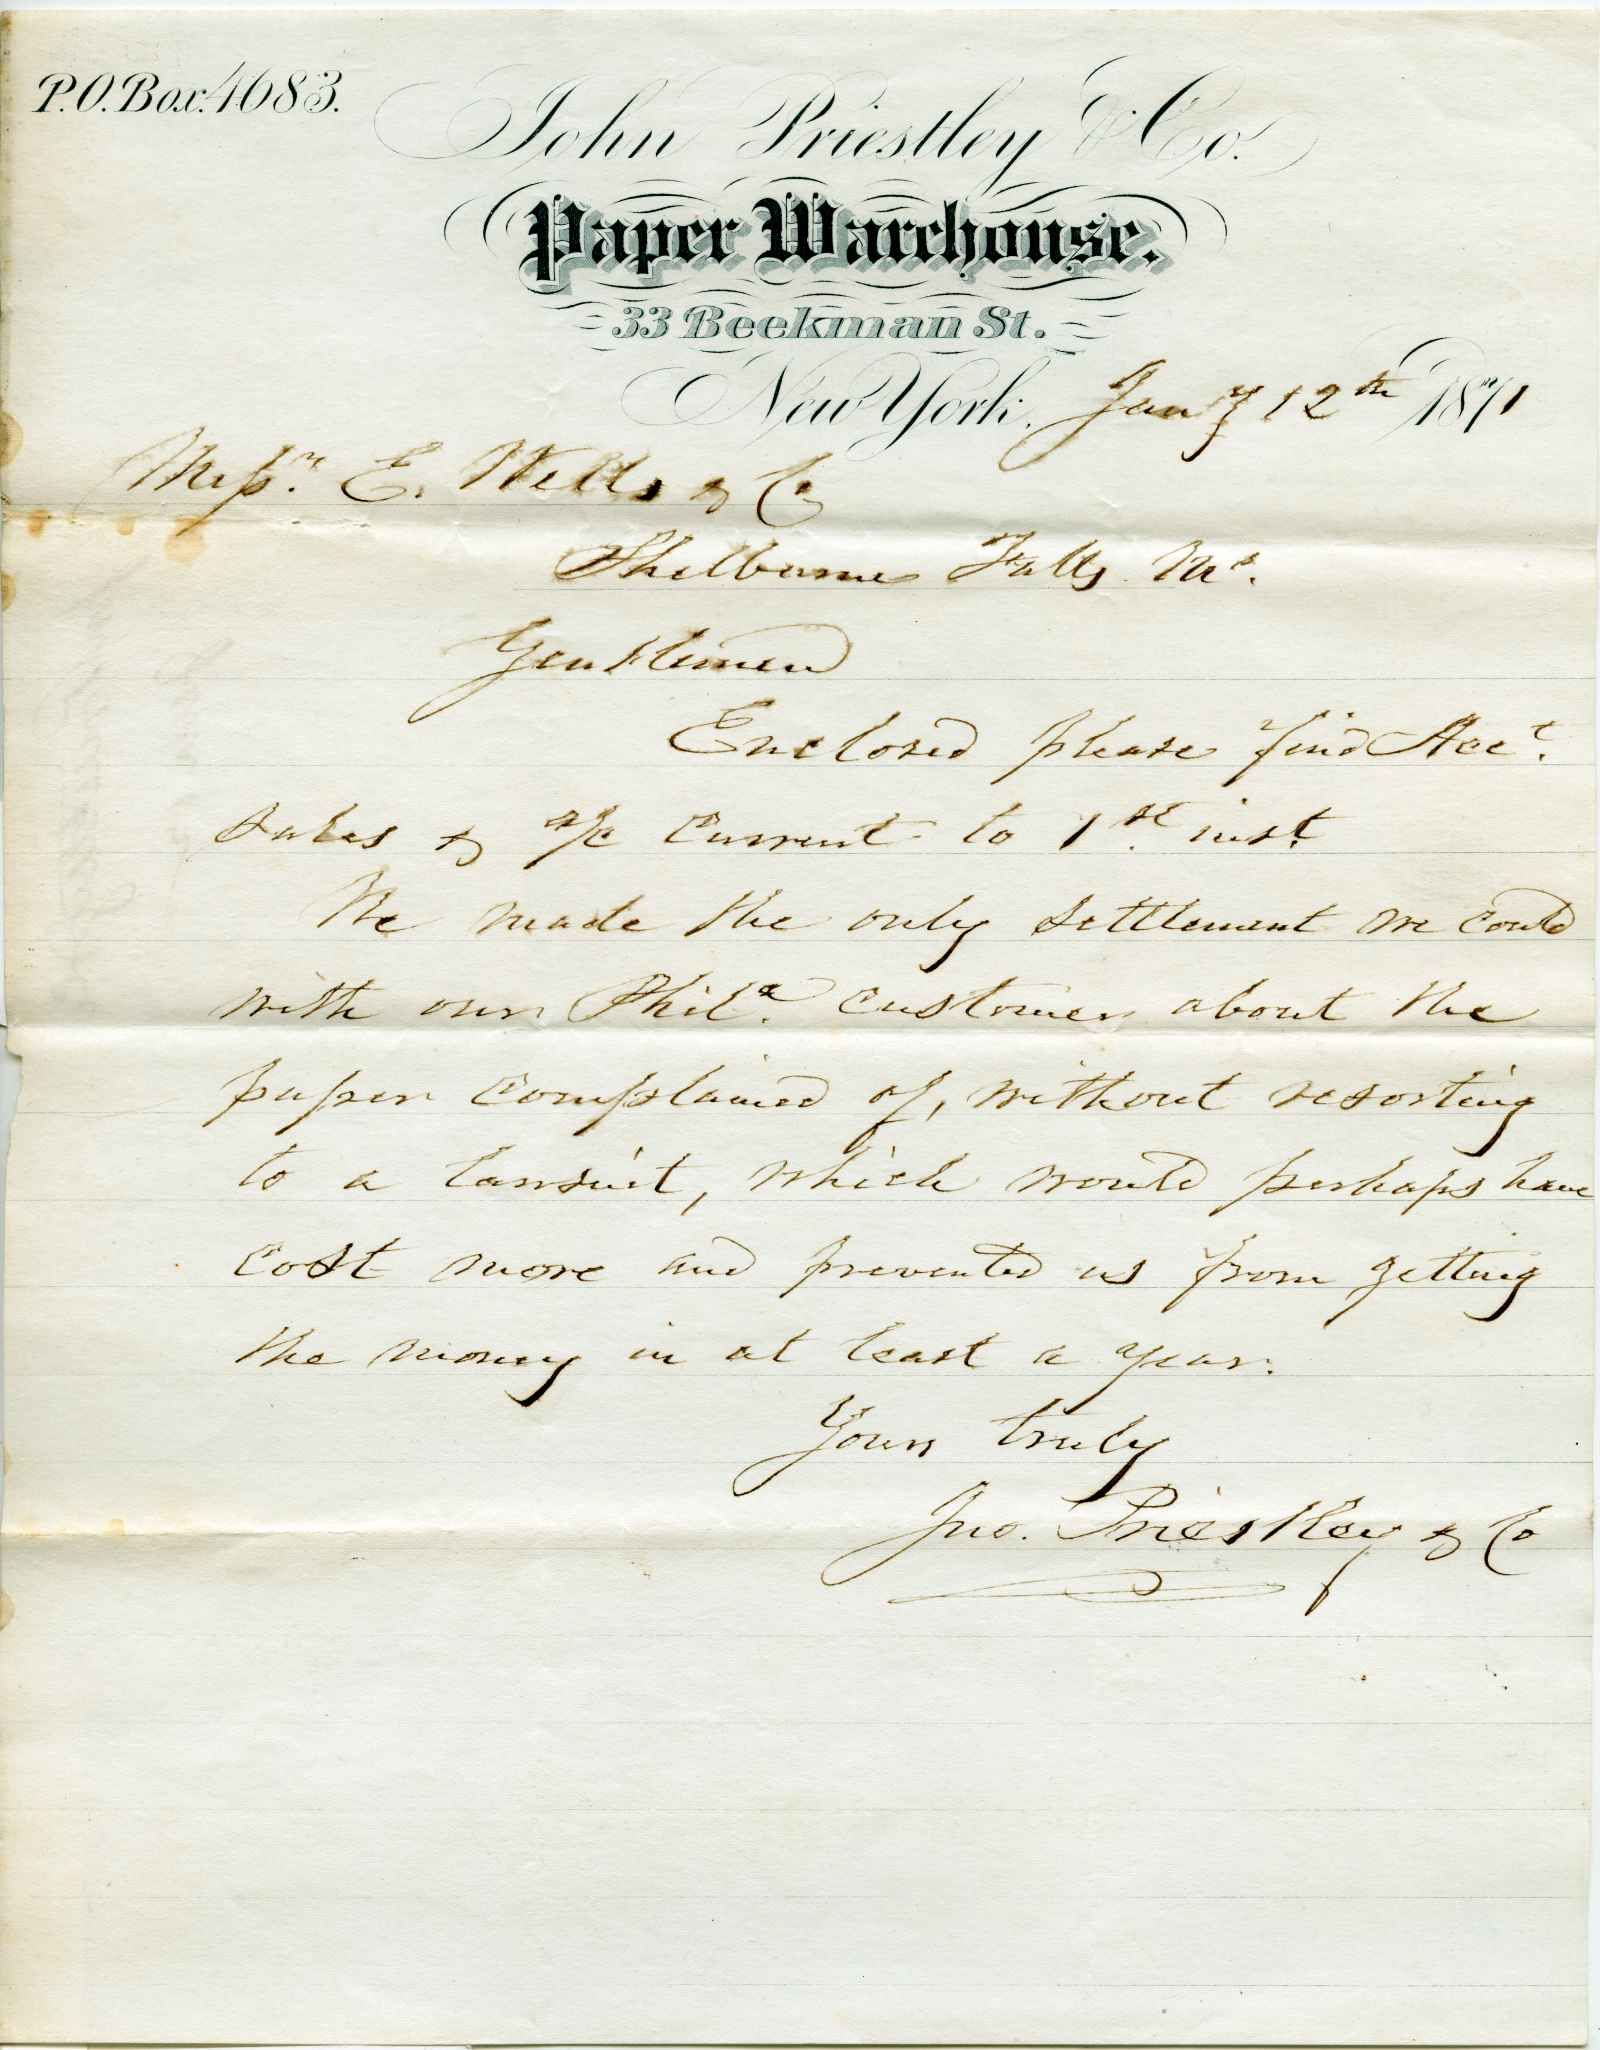 P.O. Box 4683.
John Priestley & Co.
Paper Warehouse.
33 Beekman St.
New York, Jany 12th 1871
Messrs. E. Wells & Co
Shelburne Falls Ms.
Gentlemen
Enclosed please find Acct.
Sales & a/c Current to 1st inst.
We made the only settlement we could
with our Phila. customer about the
paper complained of, without resorting
to a lawsuit, which would perhaps have
cost more and prevented us from getting
the money in at least a year.
Yours truly
Jno. Priestley & Co